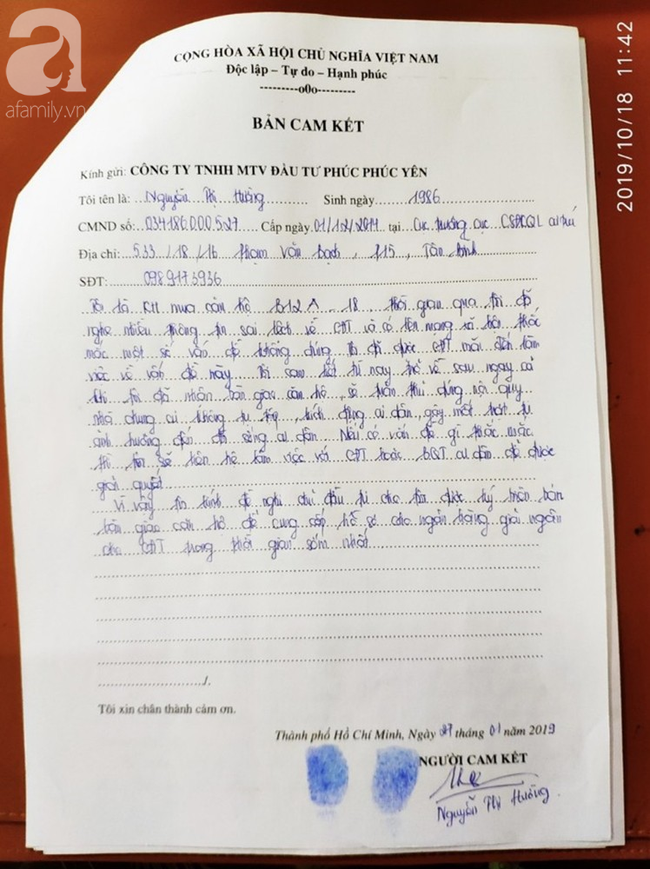 a
afamily.vn
2019/10/18 11:42
CỘNG HÒA XÃ HỘI CHỦ NGHĨA VIỆT NAM
Độc lập – Tự do – Hạnh phúc
---------o0o---------
BẢN CAM KẾT
Kính gửi: CÔNG TY TNHH MTV ĐẦU TƯ PHÚC PHÚC YÊN
Tôi tên là: Nguyễn Thị Hường Sinh ngày 1986
CMND số: 034186000527 Cấp ngày 01/12/2014 tại Cục trưởng cục CSĐKQL cư trú
Địa chỉ: 533/18/16 Phạm Văn Bạch, F15, Tân Bình
SĐT: 0989173936
Tôi là KH mua căn hộ B12A.18 thời gian qua tôi đã
nghe nhiều thông tin sai lệch về CĐT và có lên mạng xã hội thắc
mắc một số vấn đề không đúng. Tôi đã được CĐT mời đến làm
việc về vấn đề này. Tôi cam kết từ nay trở về sau ngay cả
khi tôi đã nhận bàn giao căn hộ, sẽ tuân thủ đúng nội quy
nhà chung cư không tụ tập, kích động cư dân, gây mất trật tự
ảnh hưởng đến đời sống cư dân. Nếu có vấn đề gì thắc mắc
thì tôi sẽ liên hệ làm việc với CĐT hoặc BQT cư dân để được
giải quyết
Vì vậy, tôi kính đề nghị chủ đầu tư cho tôi được ký biên bản
bàn giao căn hộ để cung cấp hồ sơ cho ngân hàng giải ngân
cho CĐT trong thời gian sớm nhất
./.
Tôi xin chân thành cảm ơn.
Thành phố Hồ Chí Minh, Ngày tháng 01 năm 2019
NGƯỜI CAM KẾT
Nguyễn Thị Hường